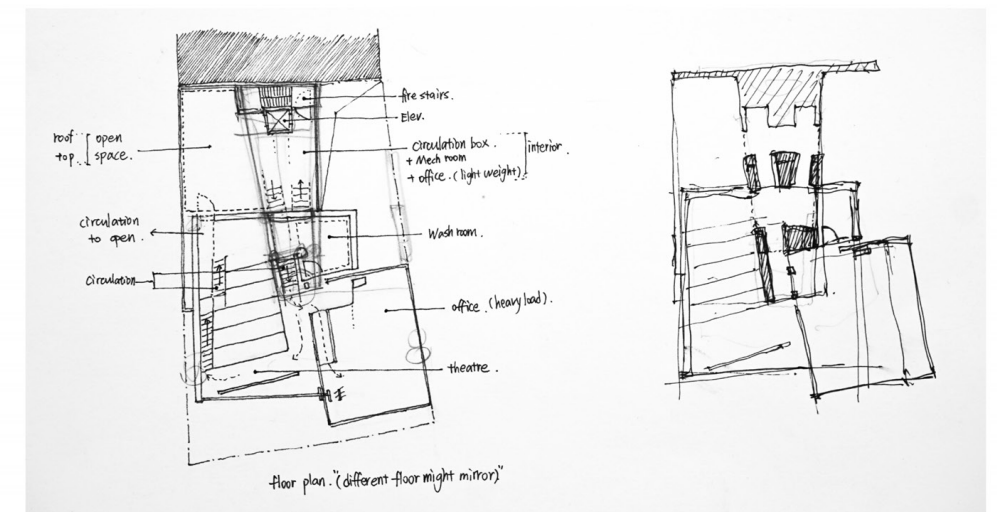 fire stairs.
Elev.
roof
top.
open
space.
circulation box.
+ Mech room
+ office. (light weight).
interior.
circulation
to open.
Wash room.
circulation
office. (heavy load).
theatre.
floor plan. "(different floor might mirror)"